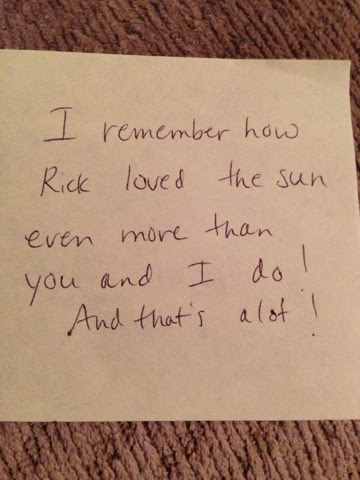 I remember how
Rick loved the sun
even more than
you and I do!
And that's alot!